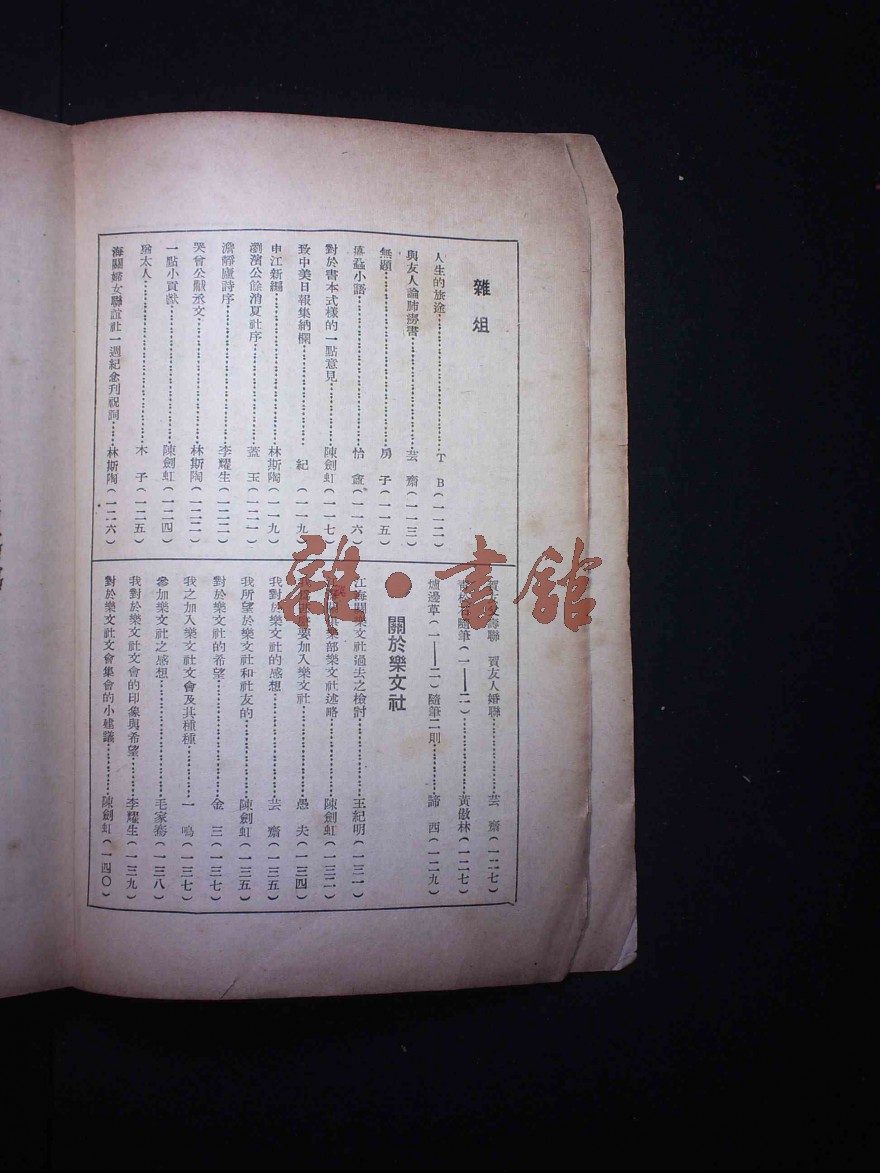 雜俎
人生的旅途……T B(一一二)
與友人論肺癆書……芸 齋(一一三)
無題……房 子(一一五)
小語……怡 盦(一一六)
對於書本式樣的一點意見……陳劍虹(一一七)
致中美日報集納欄……紀 (一一九)
申江新編……林斯陶(一一九)
瀏濱公餘消夏社序……蓋 玉(一二一)
澹靜廬詩序……李耀生(一二二)
哭曾公獻丞文……林斯陶(一二二)
一點小貢獻……陳劍虹(一二四)
猶太人……木 子(一二五)
海關婦女聯誼社一週紀念刊祝詞……林斯陶(一二六)
賀友人婚聯……芸 齋(一二七)
隨筆(一——二)……黃傲林(一二七)
爐邊草(一——二)隨筆二則……諦 西(一二九)
關於樂文社
江海關樂文社過去之檢討……王紀明(一三一)
樂部樂文社述略……陳劍虹(一三二)
要加入樂文社……愚 夫(一三四)
我對於樂文社的感想……芸 齋(一三五)
我所望於樂文社和社友的……陳劍虹(一三五)
對於樂文社的希望……金 三(一三七)
我之加入樂文社文會及其種種……一 鳴(一三七)
參加樂文社之感想……毛家騫(一三八)
我對於樂文社文會的印象與希望……李耀生(一三九)
對於樂文社文會集會的小建議……陳劍虹(一四〇)
雜·書館